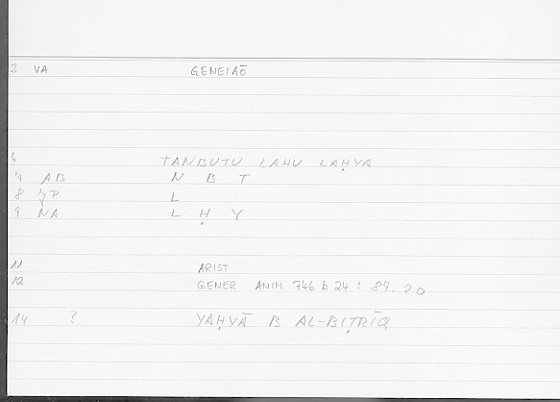 2 VA GENEIAŌ
6 TANBUTU LAHU LAḤYA
7 AB N B T
8 L
9 NA L Ḥ Y
11 ARIST
12 GENER ANIM 746 b 24 : 89. 20
14 ? YAḤYĀ B AL-BIṬRĪQ